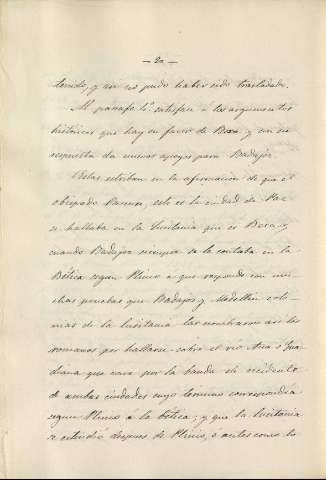 — 20 —
y aun no pudo haber sido trasladada.
Al párrafo 1º satisface a los argumentos
históricos que hay en favor de Beja y en su
respuesta da nuevos apoyos para Badajoz.
Estos estriban en la afirmacion de que el
obispado Pacense, esto es la ciudad de Paz
se hallaba en la Lusitania que es Beja y
cuando Badajoz siempre se la contaba en la
Bética segun Plinio a que responde con mu-
chas pruebas que Badajoz y Medellin colo-
nias de la Lusitania las nombraron asi los
romanos por hallarse sobre el rio Ana ó Gua-
diana que cae por la banda de occidente
de ambas ciudades cuyo termino correspondia
segun Plinio á la bética: y que la Lusitania
se estendió despues de Plinio, ó antes como lo